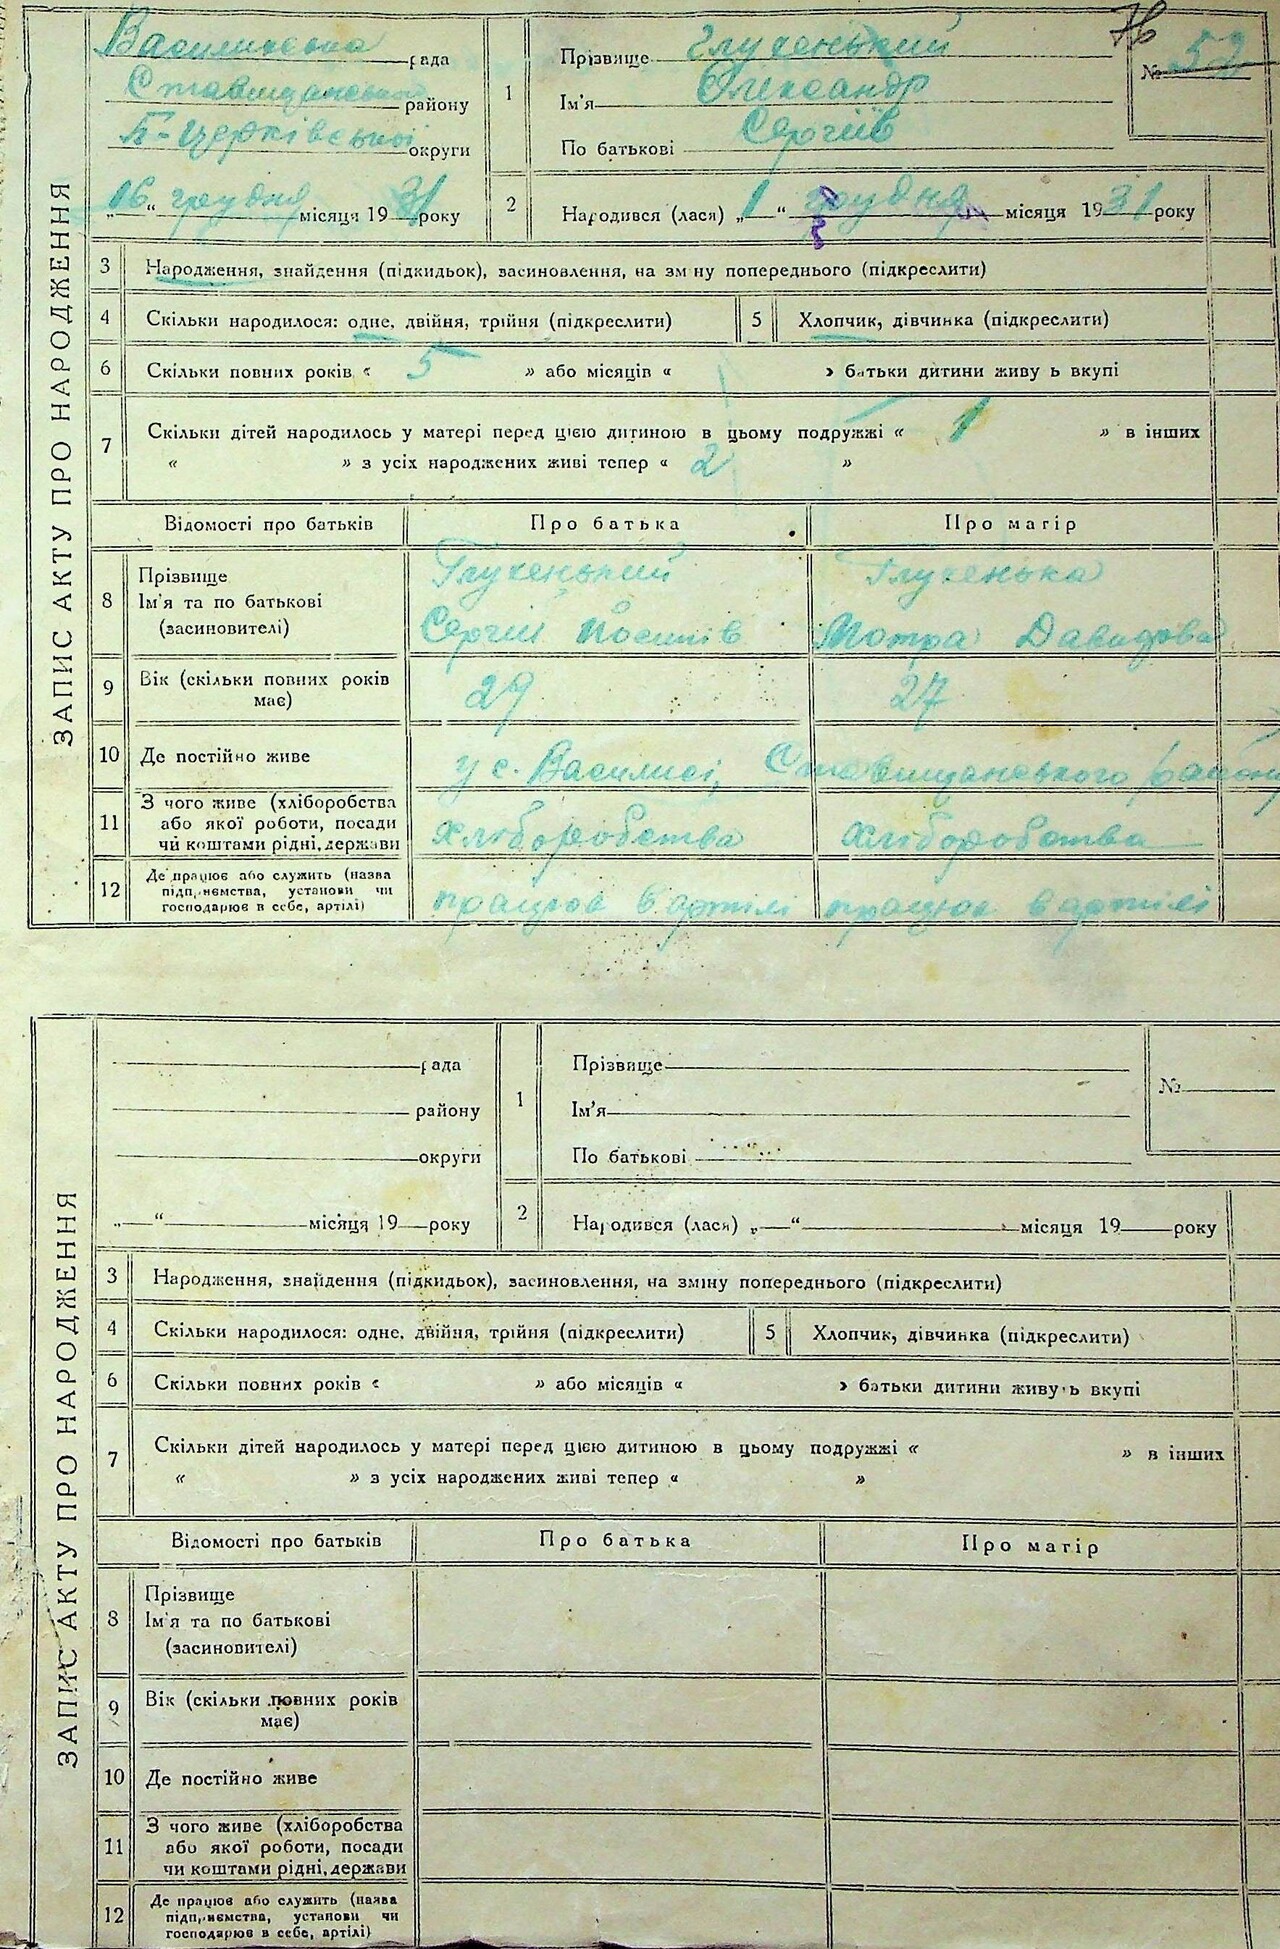 ЗАПИС АКТУ ПРО НАРОДЖЕННЯ
Василиська рада
Ставищанського району
Б-Церківської округи
„16“ грудня місяця 1931 року
76
№ 52
1 Прізвище Глухенький
Ім'я Олександр
По батькові Сергіїв
2 Народився (лася) „1“ грудня місяця 1931 року
3 Народження, знайдення (підкидьок), засиновлення, на зм ну попереднього (підкреслити)
4 Скільки народилося: одне, двійня, трійня (підкреслити) 5 Хлопчик, дівчинка (підкреслити)
6 Скільки повних років « 5 » або місяців « » батьки дитини живу ь вкупі
7 Скільки дітей народилось у матері перед цією дитиною в цьому подружжі « 1 » в інших
« » з усіх народжених живі тепер « 2 »
Відомості про батьків Про батька Про матір
8 Прізвище Глухенький Глухенька
Ім'я та по батькові
(засиновителі) Сергій Йосипів Мотра Давидова
9 Вік (скільки повних років 29 27
має)
10 Де постійно живе у с. Василисі, Ставищанського району
11 З чого живе (хліборобства
або якої роботи, посади хліборобства хліборобства
чи коштами рідні, держави
12 Де працює або служить (назва
підприємства, установи чи
господарює в себе, артілі) працює в артілі працює в артілі
ЗАПИС АКТУ ПРО НАРОДЖЕННЯ
рада
району
округи
„ “ місяця 19 року
№
1 Прізвище
Ім'я
По батькові
2 Народився (лася) „ “ місяця 19 року
3 Народження, знайдення (підкидьок), засиновлення, на зміну попереднього (підкреслити)
4 Скільки народилося: одне, двійня, трійня (підкреслити) 5 Хлопчик, дівчинка (підкреслити)
6 Скільки повних років « » або місяців « » батьки дитини живуть вкупі
7 Скільки дітей народилось у матері перед цією дитиною в цьому подружжі « » в інших
« » з усіх народжених живі тепер « »
Відомості про батьків Про батька Про матір
8 Прізвище
Ім'я та по батькові
(засиновителі)
9 Вік (скільки повних років
має)
10 Де постійно живе
11 З чого живе (хліборобства
або якої роботи, посади
чи коштами рідні, держави
12 Де працює або служить (назва
підприємства, установи чи
господарює в себе, артілі)